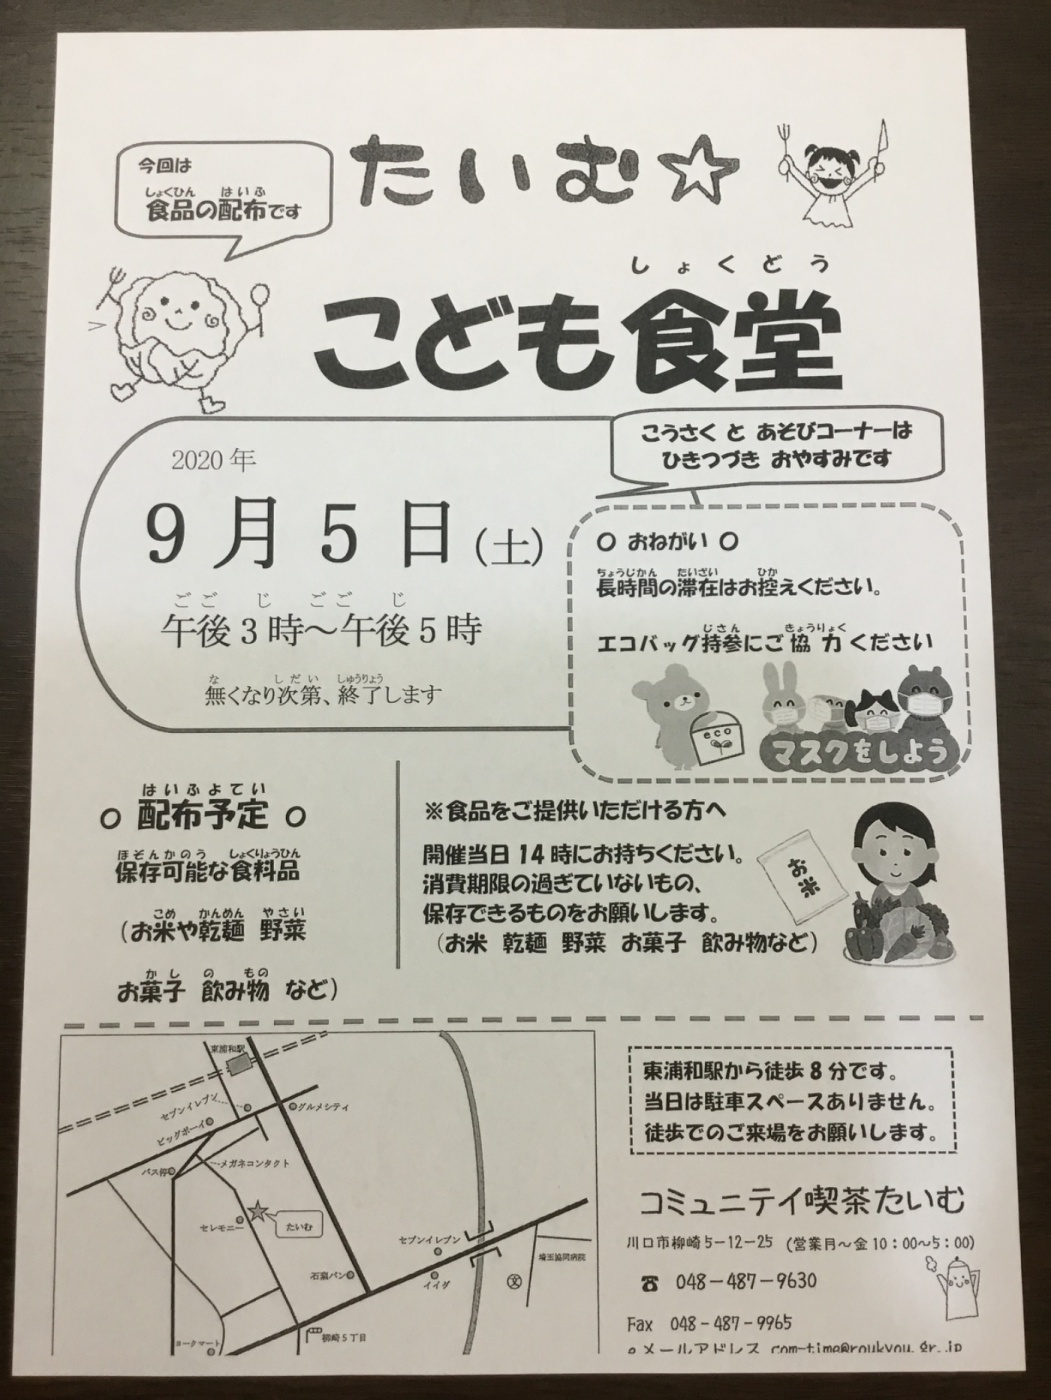 今回は
食品の配布です
たいむ☆
こども食堂
2020年
9月5日(土)
午後3時～午後5時
無くなり次第、終了します
こうさく と あそびコーナーは
ひきつづき おやすみです
○ おねがい ○
長時間の滞在はお控えください。
エコバッグ持参にご協力ください
eco
マスクをしよう
○ 配布予定 ○
保存可能な食料品
(お米や乾麺 野菜
お菓子 飲み物 など)
※食品をご提供いただける方へ
開催当日14時にお持ちください。
消費期限の過ぎていないもの、
保存できるものをお願いします。
(お米 乾麺 野菜 お菓子 飲み物など)
お米
東浦和駅
セブンイレブン
グルメシティ
ビッグボーイ
バス停
メガネコンタクト
セレモニー
たいむ
石窯パン
セブンイレブン
イイダ
文
埼玉協同病院
柳崎5丁目
ヨークマート
東浦和駅から徒歩8分です。
当日は駐車スペースありません。
徒歩でのご来場をお願いします。
コミュニテイ喫茶たいむ
川口市柳崎5-12-25 (営業月～金10:00～5:00)
☎ 048-487-9630
Fax 048-487-9965
eメールアドレス com-time@roukyou.gr.jp